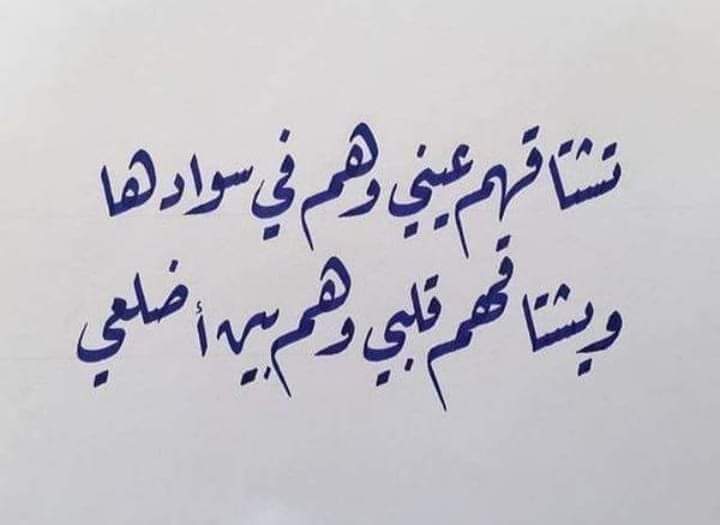 تشتاقهم عيني وهم في سوادها
ويشتاقهم قلبي وهم بين أضلعي